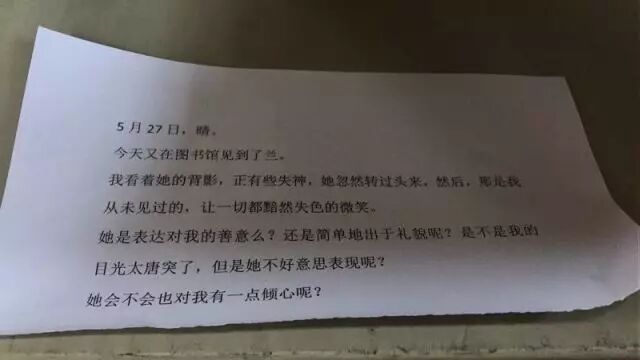 5 月 27 日，晴。
今天又在图书馆见到了兰。
我看着她的背影，正有些失神，她忽然转过头来，然后，那是我
从未见过的，让一切都黯然失色的微笑。
她是表达对我的善意么？还是简单地出于礼貌呢？是不是我的
目光太唐突了，但是她不好意思表现呢？
她会不会也对我有一点倾心呢？